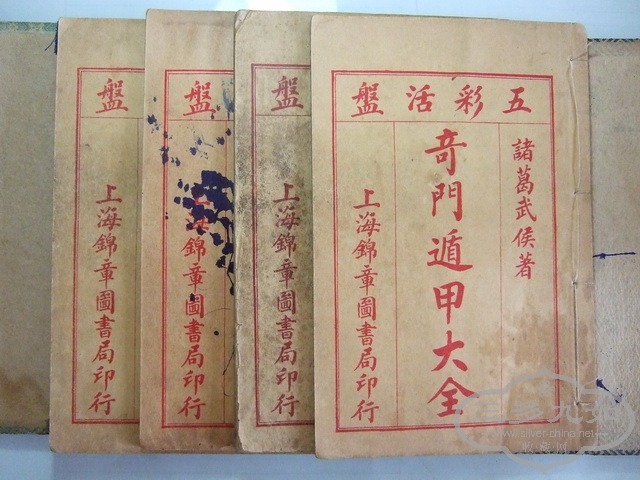 五彩活盤
諸葛武侯著
奇門遁甲大全
上海錦章圖書局印行
盤
上海錦章圖書局印行
盤
上海錦章圖書局印行
盤
上海錦章圖書局印行
www.silver-china.net